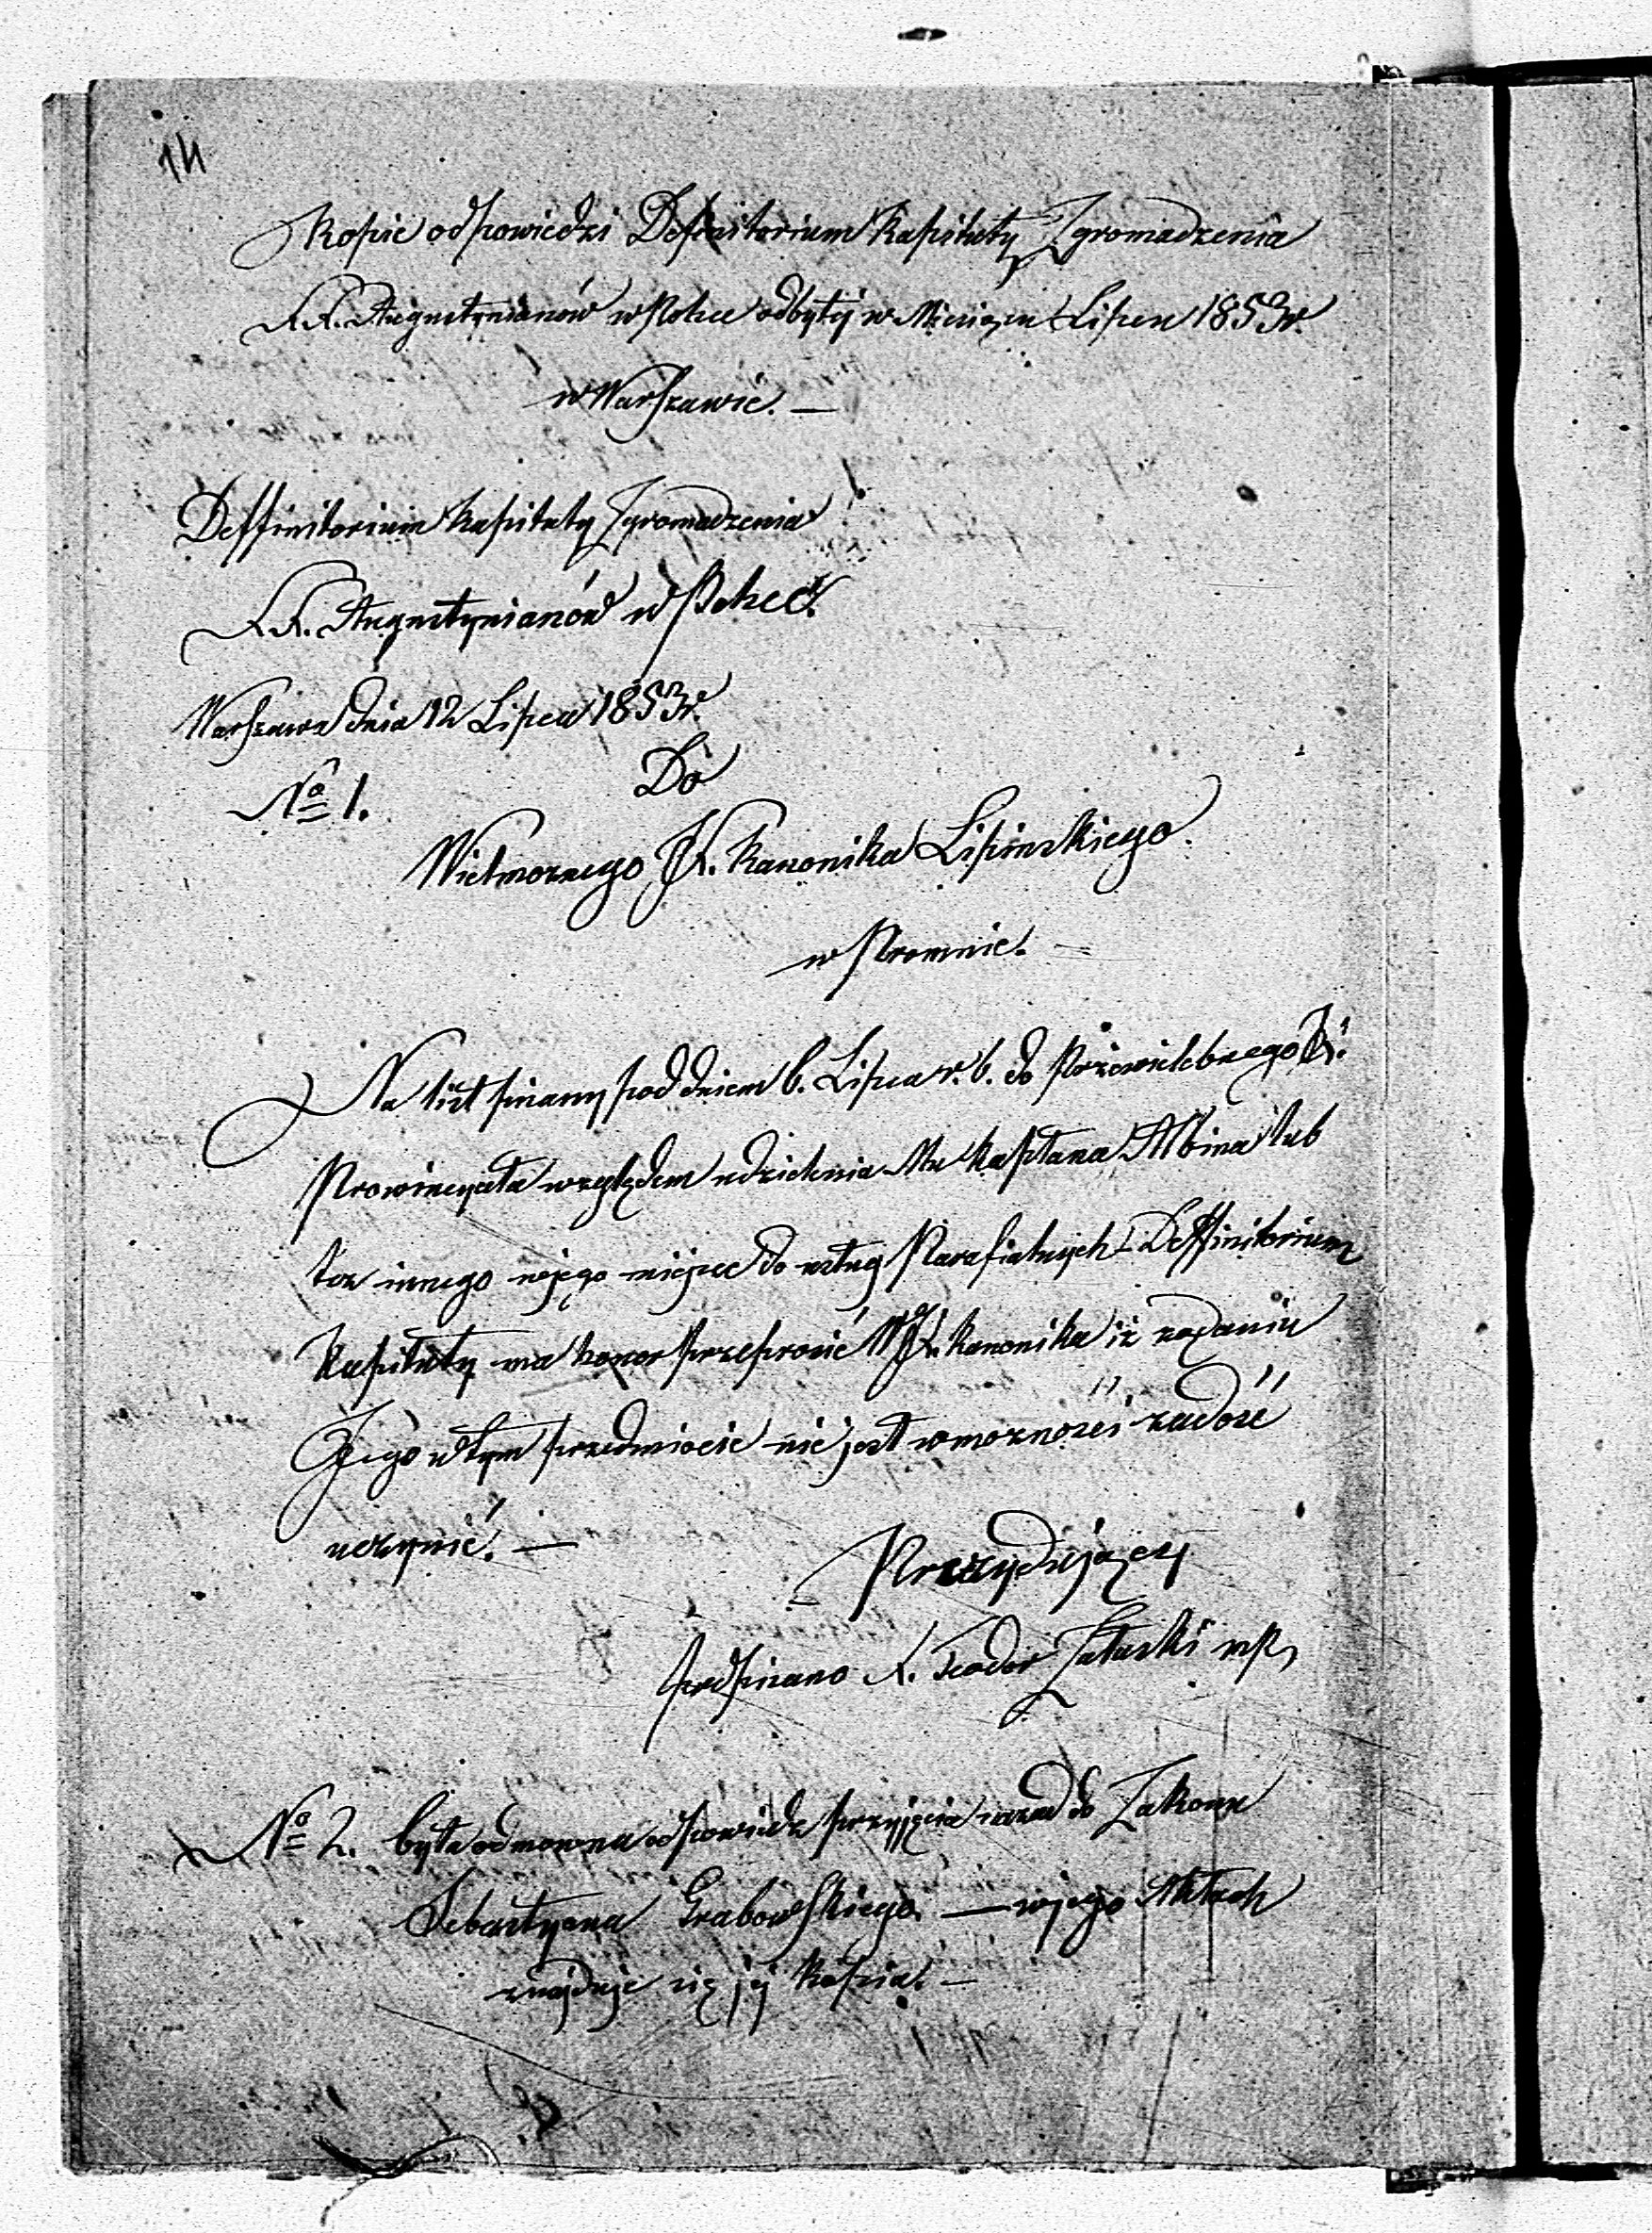 14
Kopie odpowiedzi Definitorium Kapituły Zgromadzenia
X.X. Augustynianów w Polsce odbytéj w Miesiącu Lipcu 1853r.
w Warszawie. —
Deffinitorium Kapituły Zgromadzenia
X.X. Augustynianów w Polsce.
Warszawa dnia 12 Lipca 1853r.
No 1.
Do
Wielmożnego JX. Kanonika Lipinskiego.
w Promnie.
Na list pisany pod dniem 6. Lipca r. b. do Przewielebnego X.
Prowincyała względem udzielenia Mu Kapłana Albina lub
też innego w jego miejsce do usług Parafialnych – Deffinitorium
Kapituły ma honor przeprosić WJX. Kanonika iż żądaniu
Jego w tym przedmiocie nie jest w możności zadość
uczynić. —
Prezydujący
podpisano X. Teodor Załuski mp,
No 2. była odmowna odpowiedz przyjęcia nazad do Zakonu
Sebastyana Grabowskiego. — w jego Aktach
znajduje się jéj kopia. —